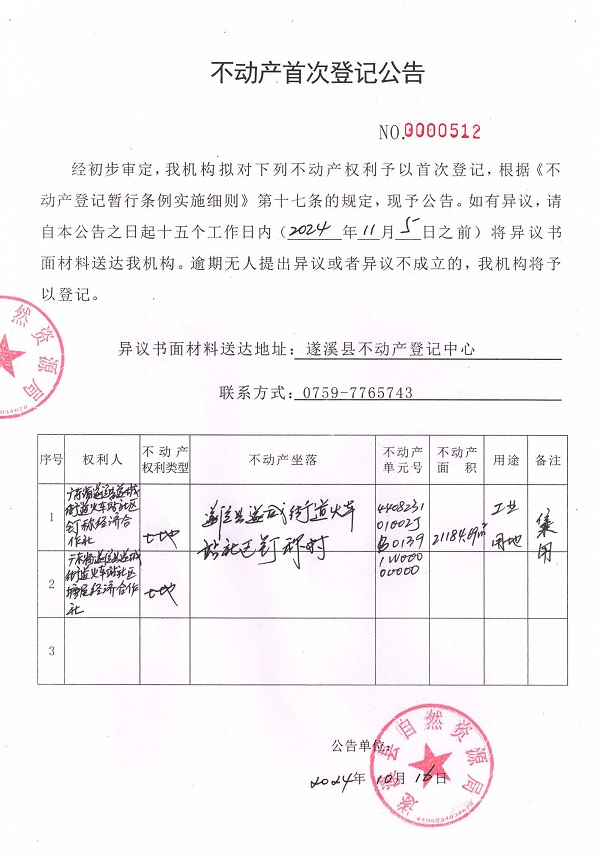 不动产首次登记公告
NO.0000512
经初步审定，我机构拟对下列不动产权利予以首次登记，根据《不
动产登记暂行条例实施细则》第十七条的规定，现予公告。如有异议，请
自本公告之日起十五个工作日内（2024 年11月5日之前）将异议书
面材料送达我机构。逾期无人提出异议或者异议不成立的，我机构将予
以登记。
然资源局
异议书面材料送达地址：遂溪县不动产登记中心
联系方式：0759-7765743
序号 权利人 不动产权利类型 不动产坐落 不动产单元号 不动产面积 用途 备注
1 广东省遂溪县遂城街道火车站社区钉称经济合作社 土地 遂溪县遂城街道火车站社区钉称村 440823101002JB01391W00000000 21184.69㎡ 工业用地 集用
2 广东省遂溪县遂城街道火车站社区塘尾经济合作社 土地
3
公告单位：
2024年10月16日
遂溪县自然资源局